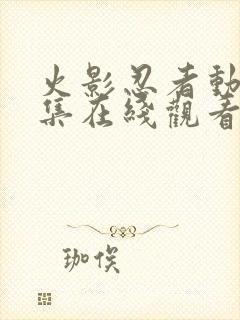 火影忍者動
集在綫觀看
珈俟